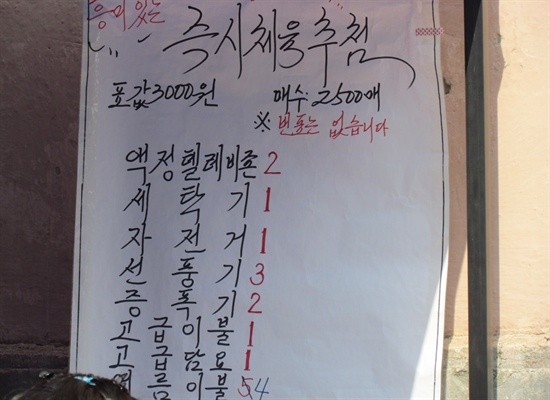 흥미있는
즉시체육추첨
표값3000원 매수:2500매
※ 빈표는 없습니다
액정텔레비죤 2
세탁기 1
자전거 1
선풍기 3
증폭기 2
고급이불 1
고급담요 1
여름이불 54